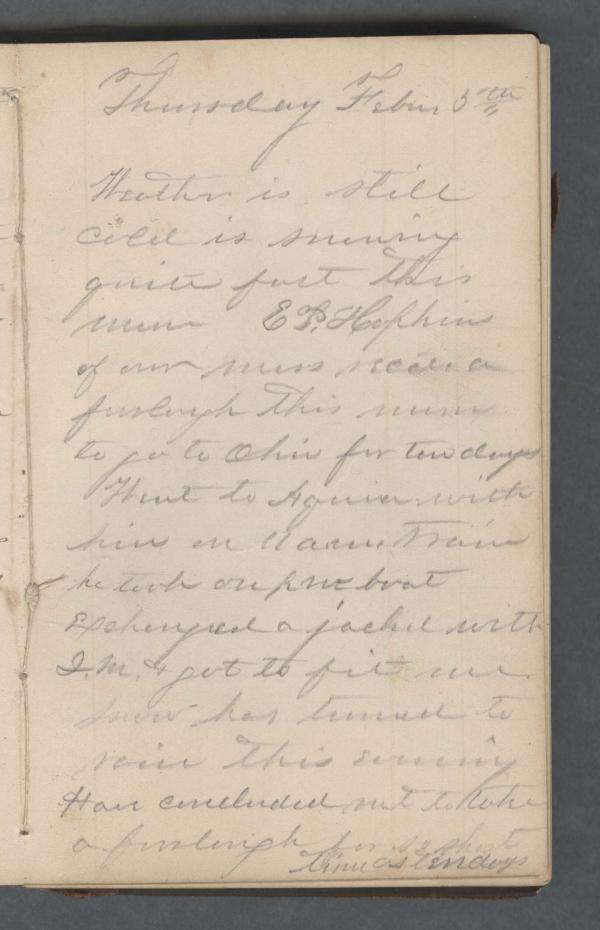 Thursday Febru 5th
Weather is still
cold is snowing
quite fast this
morn E P. Hopkins
of our mess recd a
furlough this morn
to go to Ohio for ten days
Went to Aquia with
him on 11 a.m. Train
he took one p m boat
Exchanged a jacket with
Q.M. & got to fit me
snow has turned to
rain this evening
Have concluded not to take
a furlough for so short
time as ten days